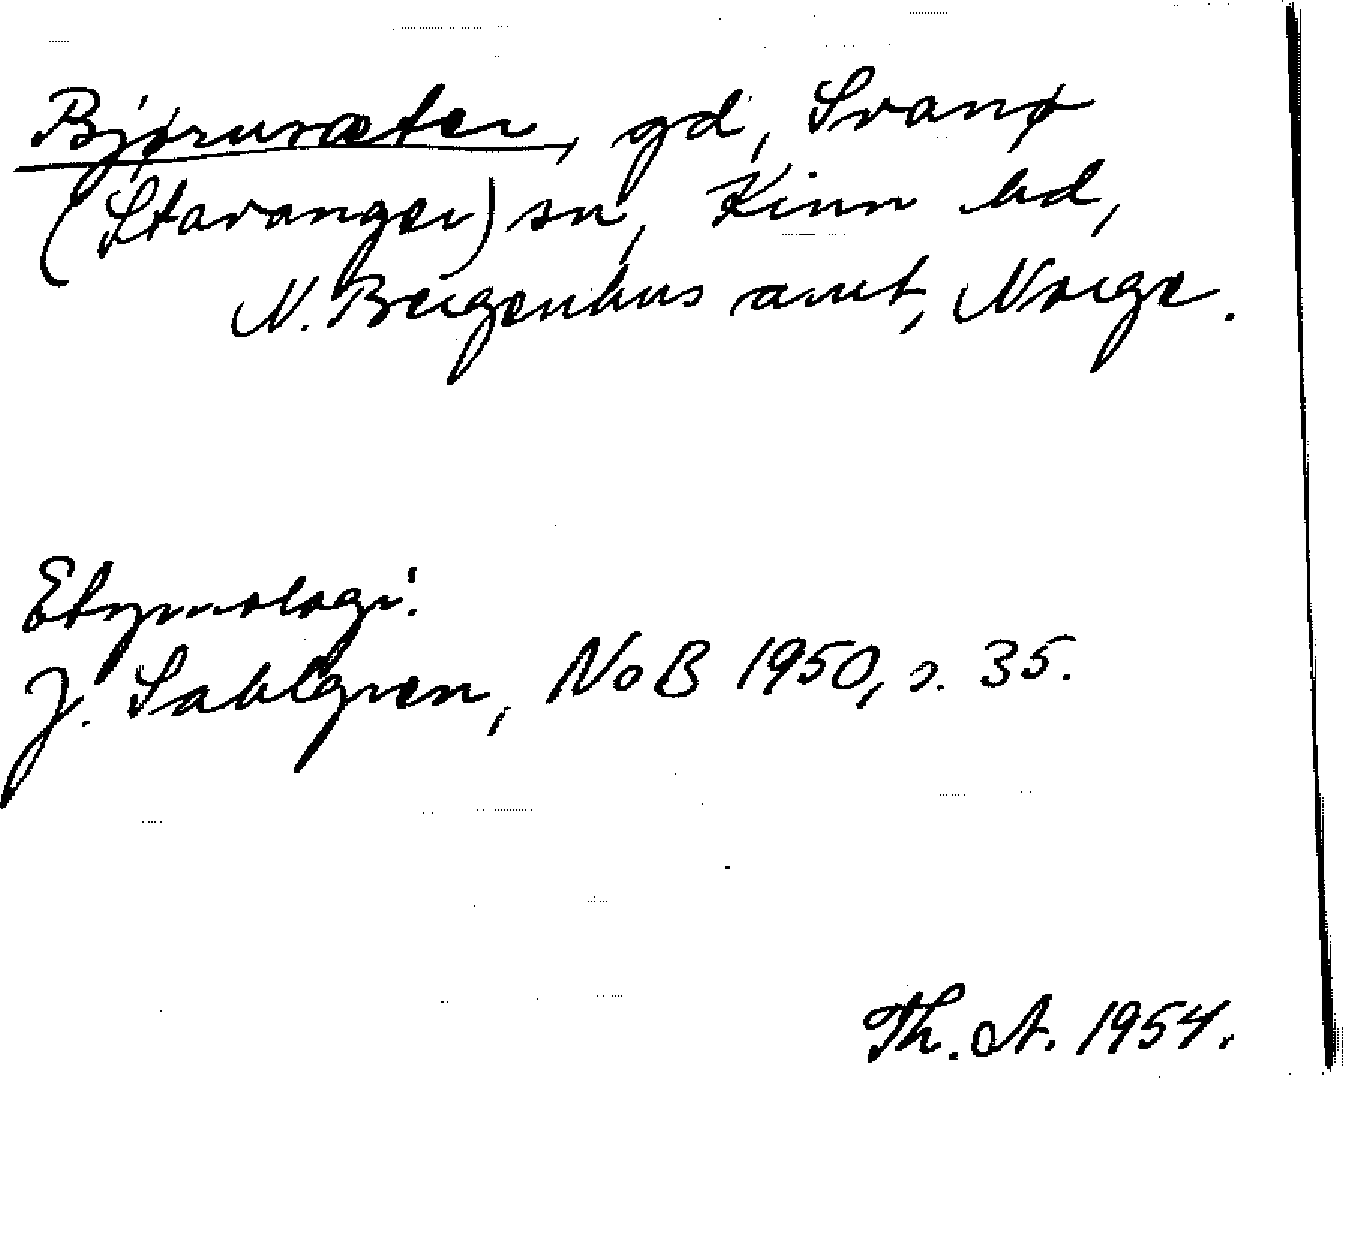 Bjørnvæter, gd, Svanø
(Stavanger) sn, Kinn hd,
N. Bergenhus amt, Norge.
Etymologi:
J. Sahlgren, NoB 1950, s. 35.
Th. A. 1954.